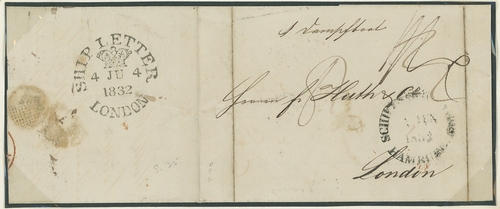 SHIP LETTER
4 JU 4
1832
LONDON
p Dampfboot
Herren
Huth & Co
SCHIFFS
JUN
HAMBURG
London